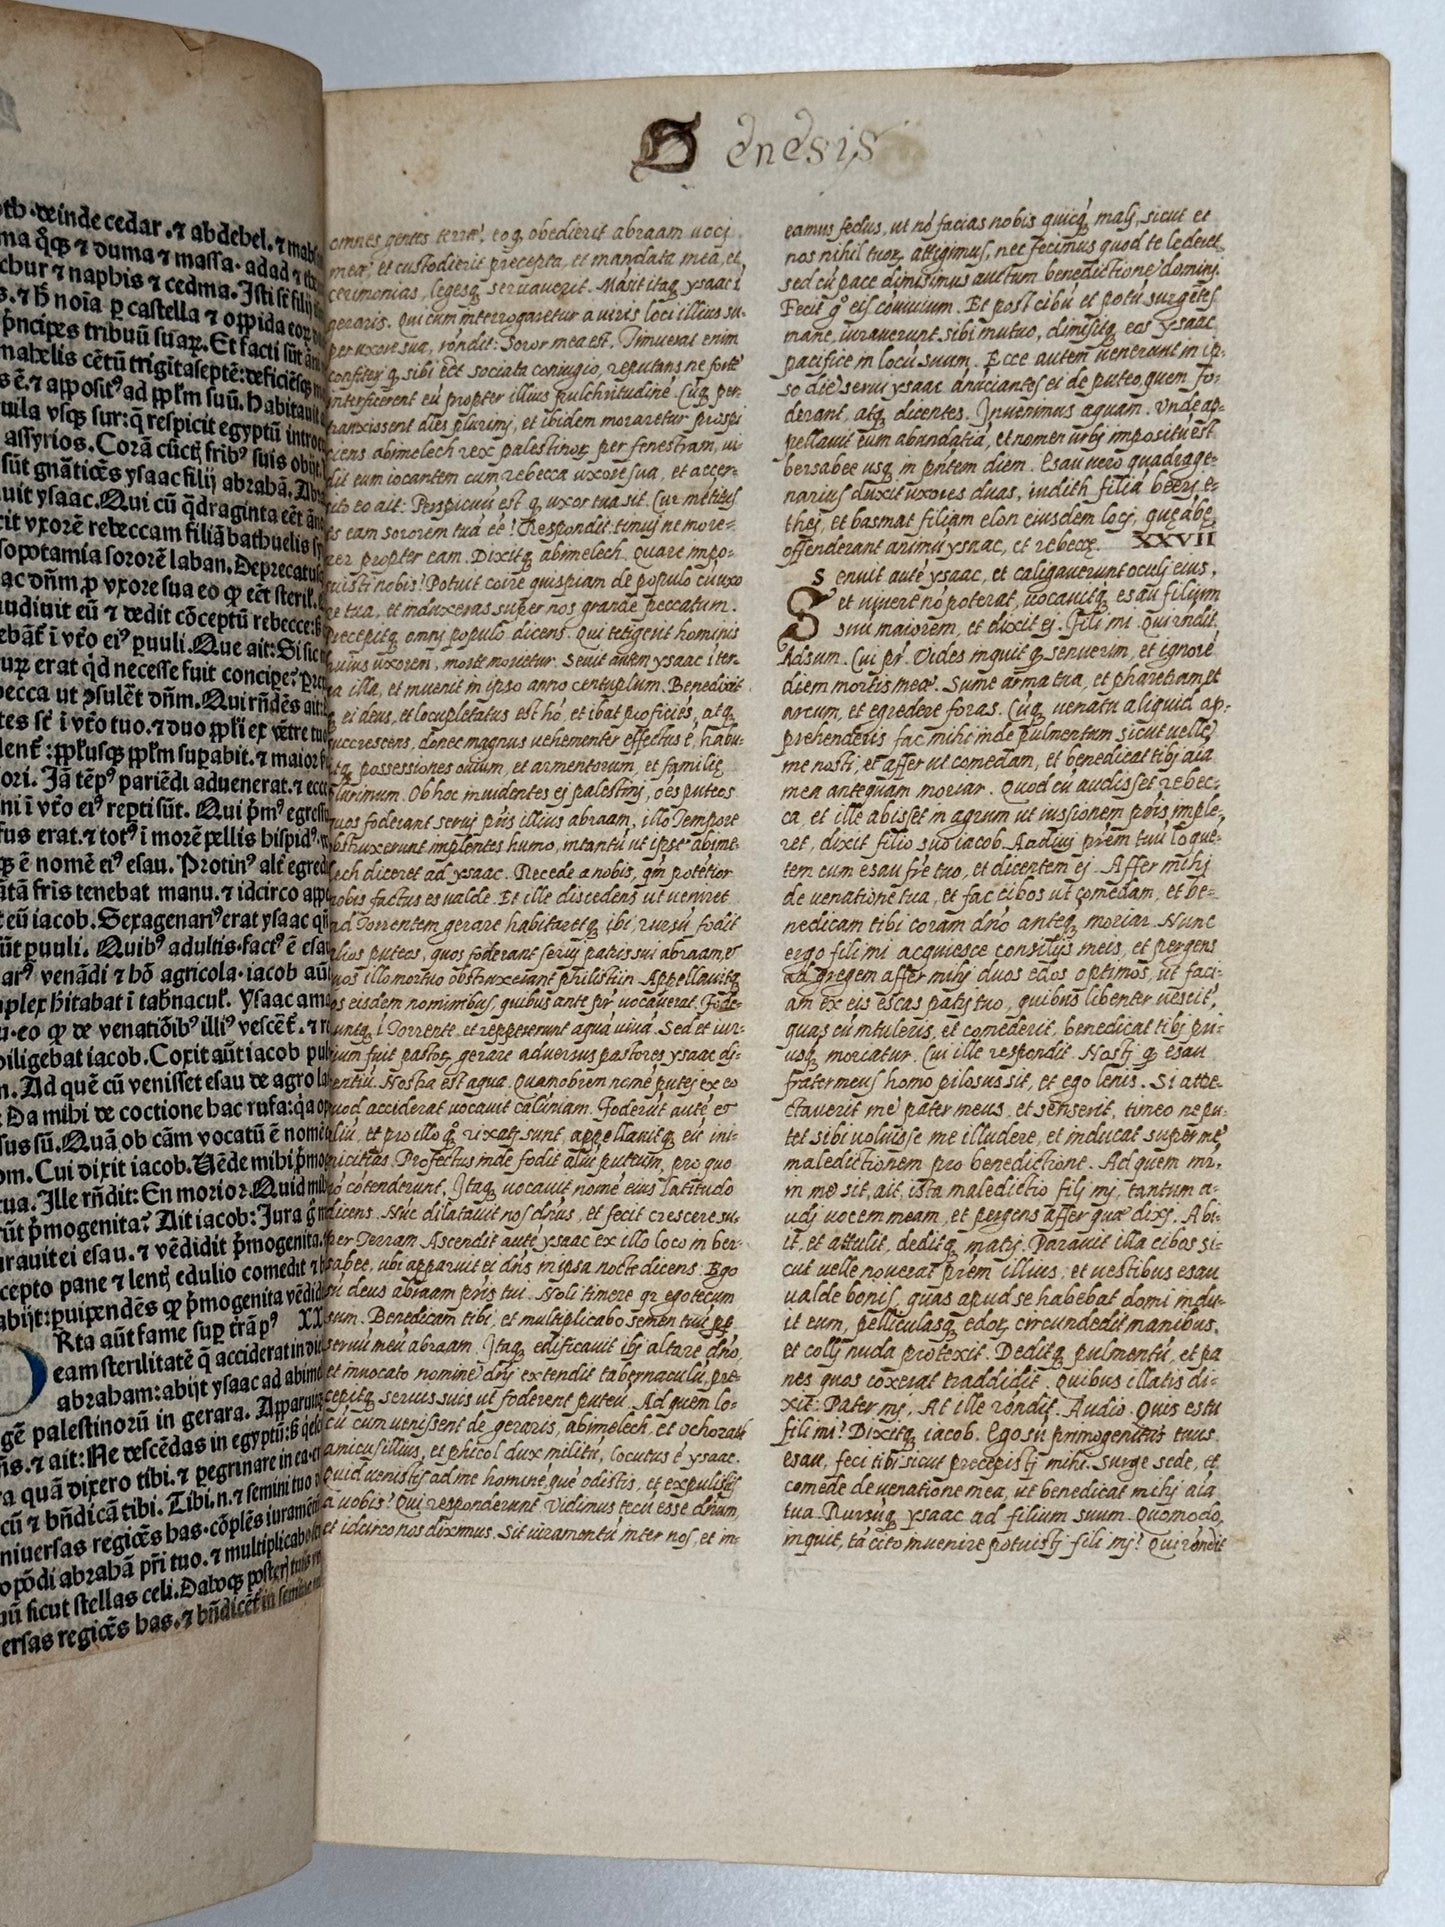 oth. deinde cedar. ⁊ abdebel. ⁊ mab
ma q̃qꝫ ⁊ duma ⁊ massa. adad ⁊
thur ⁊ naphis ⁊ cedma. Isti sũt filij
s. ⁊ h̃ noĩa ꝑ castella ⁊ oppida eoꝝ
p̃ncipes tribuũ suaꝝ. Et facti sũt
mahelis cẽtũ trigĩtaseptẽ: deficiẽsqꝫ
s ẽ. ⁊ appositꝰ ad pplm suũ. Habitauit
uila vsqꝫ sur: q̃ respicit egyptũ introe
assyrios. Corã cũctꝭ frĩbꝰ suis obijt.
sũt gnãtiões ysaac filij abrahã. Abra
uit ysaac. Qui cũ q̃draginta eẽt
it vxorẽ rebeccam filiã bathuelis
sopotamia sororẽ laban. Deprecatus
ac dñm ꝓ vxore sua eo qꝙ eẽt steril.
udiuit eũ ⁊ dedit cõceptũ rebecce:
ebãt̃ ĩ vtõ eiꝰ puuli. Que ait: Si sic
tuꝝ erat q̇d necesse fuit concipe?
becca ut ꝯsulẽt dñm. Qui rñdẽs ait:
tes sũt ĩ vtõ tuo. ⁊ duo ppli ex vẽtre tuo
ent̃: pplusqꝫ pplm supabit. ⁊ maior
ori. Jã tẽpꝰ pariẽdi aduenerat. ⁊ ecce
ni ĩ vtõ eiꝰ repti sũt. Qui p̃mꝰ egressus
fus erat. ⁊ totꝰ ĩ morẽ pellis hispidꝰ.
qꝫ ẽ nomẽ eiꝰ esau. Protinꝰ alt̃ egred
ãtã fris tenebat manu. ⁊ idcirco app
t eũ iacob. Sexagenariꝰ erat ysaac qñ
ũt puuli. Quibꝰ adultis. factꝰ ẽ esau
arꝰ venãdi ⁊ hõ agricola. iacob aũt
mplex hitabat ĩ tabñacul. Ysaac ama
u. eo qꝙ de venatiõibꝰ illiꝰ vescẽt̃. ⁊ re
diligebat iacob. Coxit aũt iacob pul
n. Ad quẽ cũ venisset esau de agro la
Da mihi de coctione hac rufa: q̇a op
sus sũ. Quã ob cãm vocatũ ẽ nomẽ
om. Cui dixit iacob. Vẽde mihi p̃mog
tua. Ille rñdit: En morior. Quid mihi
rũt p̃mogenita? Ait iacob: Jura g̃ m
urauit ei esau. ⁊ vẽdidit p̃mogenita.
cepto pane ⁊ lentꝭ edulio comedit ⁊ b
abijt: puipendẽs qꝙ p̃mogenita vẽdid
Rta aũt fame sup tr̃ã pꝰ XX
eam sterilitatẽ q̃ acciderat in die
abraham: abijt ysaac ad abime
gẽ palestinorũ in gerara. Apparuitqꝫ
ñs. ⁊ ait: Ne descẽdas in egyptũ: s̃ q̇esce
ra quã dixero tibi. ⁊ pegrinare in ea.
cũ ⁊ bñdicã tibi. Tibi .n. ⁊ semini tuo
niuersas regiões has. cõplẽs iuramẽ
o põdi abrahã pr̃i tuo. ⁊ multiplicabo
uũ sicut stellas celi. Daboqꝫ posterꝭ tuis
ersas regiões has. ⁊ bñdicẽt̃ in semine
Genesis
omnes gentes terræ, eoq̃ obedierit abraam uocj
meæ, et custodierit precepta, et mandata mea, et
cerimonias, legesq; seruauerit. Māsit itaq; ysaac ī
geraris. Qui cum interrogaretur a uiris loci illius su-
per uxore sua, rōndit: Soror mea est. Timuerat enim
confiteri q; sibi eēt sociata coniugio, reputans ne forte
interficerent eū propter illius pulchritudinē. Cūq; per-
transissent dies plurimj, et ibidem moraretur prospi
ciens abimelech rex palestinoꝝ per fenestram, ui
dit eum iocantem cum rebecca uxore sua, et accer-
sito eo ait: Perspicuū est q; uxor tua sit. Cur mētitus
es eam sororem tuā eē? Respondit: timuj ne more=
rer propter eam. Dixitq; abimelech. Quare impo-
suisti nobis? Potuit coire quispiam de populo cū uxo
re tua, et induxeras super nos grande peccatum.
precepitq; omnj populo dicens. Qui tetigerit hominis
huius uxorem, morte morietur. Seuit autem ysaac ī ter-
ra illa, et inuenit in ipso anno centuplum. Benedixit
q; ei deus, et locupletatus est hō, et ibat proficiēs, atq;
succrescens, donec magnus uehementer effectus ē, habu-
itq; possessiones ouium, et armentorum, et familię
plurimum. Ob hoc inuidentes ej palestinj, ōes puteos
quos foderant seruj pr̄is illius abraam, illo tempore
obstruxerunt implentes humo, intantū ut ipse abime-
lech diceret ad ysaac. Recede a nobis, qm̄ potētior
nobis factus es ualde. Et ille discedens ut ueniret
ad torrentem gerare habitaretq; ibi, rursū fodit
alios puteos, quos foderant seruj patris sui abraam, et
quos illo mortuo obstruxerant philistiin. Appellauitq;
eos eisdem nominibus, quibus ante pr̄ uocauerat. Fode-
runtq; ī torrente, et reppererunt aquā uiuā. Sed et iur-
gium fuit pastoꝝ gerare aduersus pastores ysaac dj-
centiū. Nostra est aqua. Quanobrem nomē putej ex eo
quod acciderat uocauit calūniam. Foderūt autē et
aliū, et pro illo q̄; rixatj sunt, appellauitq; eū ini-
micitias. Profectus inde fodit aliū puteum, pro quo
nō cōtenderunt. Jtaq; uocauit nomē eius latitudo
dicens. Nūc dilatauit nos dn̄us, et fecit crescere su-
per terram. Ascendit autē ysaac ex illo loco in ber-
sabee, ubi apparuit ej dn̄s in ipsa nocte dicens. Ego
sū deus abraam pr̄is tui. Noli timere qr ego tecum
sum. Benedicam tibi, et multiplicabo semen tuū pp
seruū meū abraam. Jtaq; edificauit ibj altare dn̄o,
et inuocato nomine dn̄j extendit tabernaculū, pre-
cepitq; seruis suis ut foderent puteū. Ad quem lo-
cū cum uenissent de geraris, abimelech, et ochozath
amicus illius, et phicol dux militū, locutus ē ysaac.
Quid uenistis ad me hominē, quē odistis, et expulistis
a uobis? Qui responderunt. Vidimus tecū esse dn̄um,
et idcirco nos diximus. Sit iuramentū inter nos, et in-
eamus fedus, ut nō facias nobis quicq; malj, sicut et
nos nihil tuoꝝ attigimus, nec fecimus quod te lederet
sed cū pace dimisimus auctum benedictione dominj.
Fecit g̊ eis cōuiuium. Et post cibū et potū surgētes
mane, iurauerunt sibi mutuo, dimisitq; eos ysaac
pacifice in locū suum. Ecce autem uenerunt in ip-
so die serui ysaac anūciantes ei de puteo, quem fo-
derant, atq; dicentes. Jnuenimus aquam. Vnde ap-
pellauit eum abundātiā, et nomen urbj impositū est
bersabee usq; in pn̄tem diem. Esau uero quadrage-
narius duxit uxores duas, iudith filiā beerj e-
thej, et basmat filiam elon eiusdem locj, quę ābę
offenderant animū ysaac, et rebecę. XXVII
Senuit autē ysaac, et caligauerunt oculj eius,
et uidere nō poterat, uocauitq; esau filium
suū maiorem, et dixit ej. Fili mi. Qui rn̄dit.
Adsum. Cui pr̄. Vides inquit q; senuerim, et ignorē
diem mortis meæ. Sume arma tua, et pharetram, et
arcum, et egredere foras. Cūq; uenatu aliquid ap-
prehenderis fac mihi inde pulmentum sicut uelle
me nosti, et affer ut comedam, et benedicat tibj aīa
mea antequam moriar. Quod cū audisset rebec-
ca, et ille abisset in agrum ut iussionem pr̄is imple-
ret, dixit filio suo iacob. Audiuj pr̄em tuū loquē-
tem cum esau frē tuo, et dicentem ej. Affer mihj
de uenatione tua, et fac cibos ut comedam, et be-
nedicam tibi coram dn̄o anteq; moriar. Nunc
ergo fili mi acquiesce consilijs meis, et pergens
ad gregem affer mihj duos edos optimos, ut faci-
am ex eis escas patrj tuo, quibus libenter uescit̄,
quas cū intuleris, et comederit, benedicat tibj pri-
usq; moriatur. Cui ille respondit. Nostj q; esau
frater meus homo pilosus sit, et ego lenis. Si atre-
ctauerit me pater meus, et senserit, timeo ne pu-
tet sibi uoluisse me illudere, et inducat super me
maledictionem pro benedictione. Ad quem mr̄.
in me sit, ait, ista maledictio filj mj, tantum a-
udj uocem meam, et pergens affer quæ dixj. Abi-
it, et attulit, deditq; matrj. Parauit illa cibos si-
cut uelle nouerat pr̄em illius, et uestibus esau
ualde bonis, quas apud se habebat domi indu-
it eum, pelliculasq; edoꝝ circundedit manibus,
et collj nuda protexit. Deditq; pulmentū, et pa
nes quos coxerat traddidit. Quibus illatis di-
xit: Pater mj. At ille rōndit. Audio. Quis es tu
fili mi? Dixitq; iacob. Ego sū primogenitus tuus
esau, feci tibi sicut precepistj mihi. Surge sede, et
comede de uenatione mea, ut benedicat mihj aīa
tua. Rursūq; ysaac ad filium suum. Quomodo,
inquit, tā cito inuenire potuistj fili mj? Qui rōndit